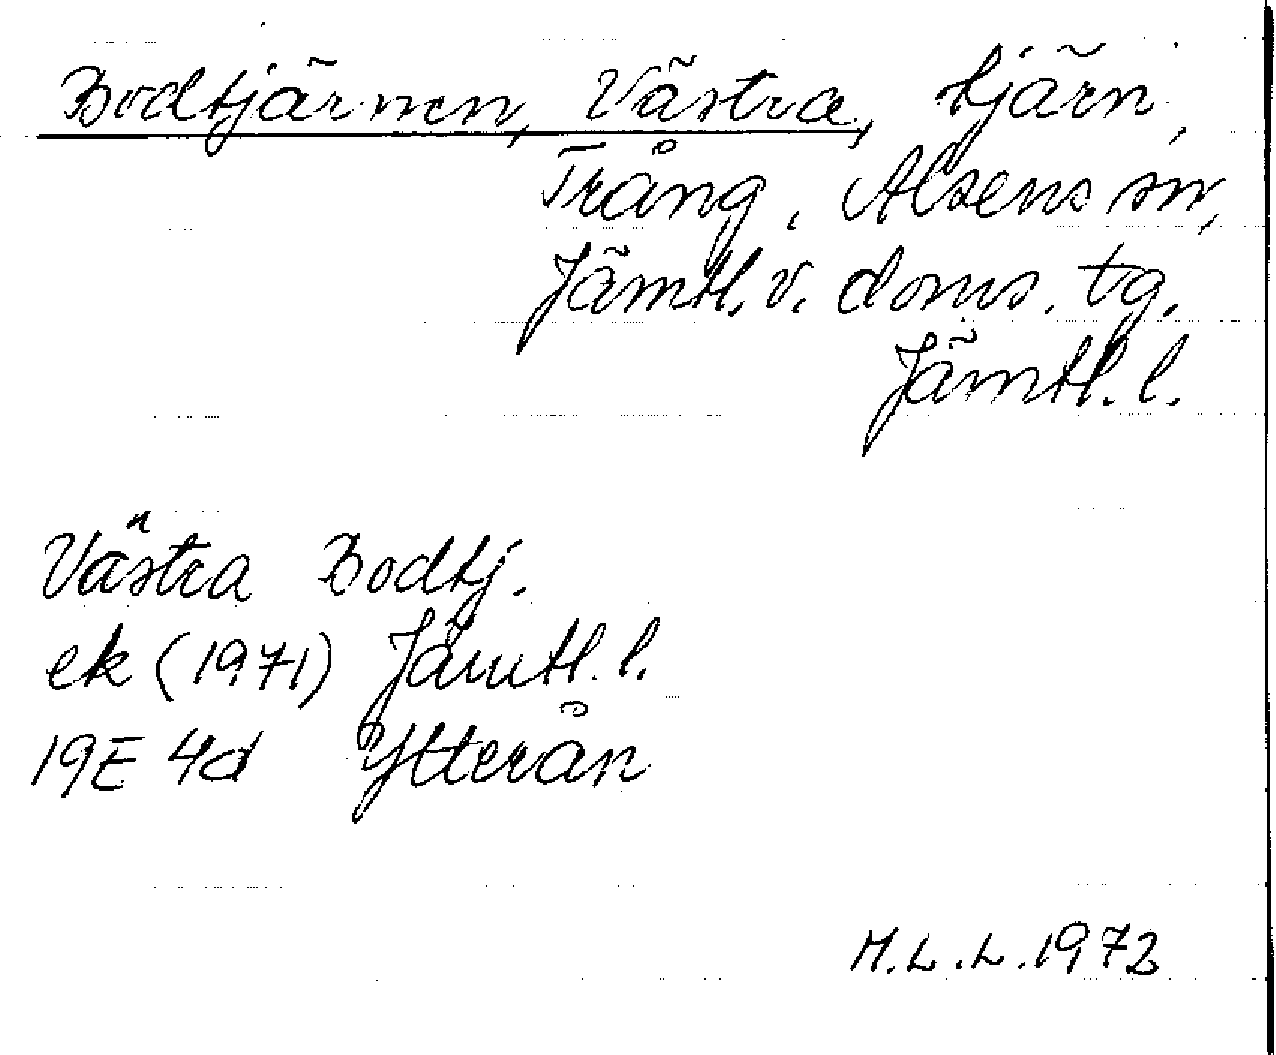 Bodtjärnen, Västra, tjärn,
Trång, Alsens sn,
Jämtl. v. doms. tg.
Jämtl. l.
Västra Bodtj.
ek (1971) Jämtl. l.
19E 4d Ytterån
M.L.L. 1973